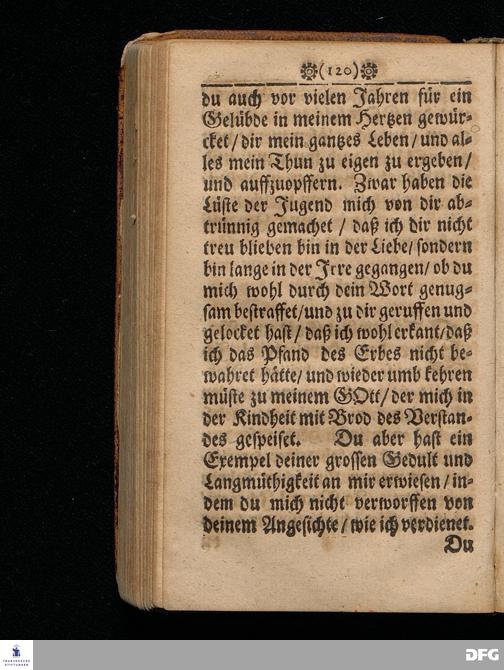 (120)
du auch vor vielen Jahren für ein
Gelübde in meinem Hertzen gewür-
cket / dir mein gantzes Leben / und al-
les mein Thun zu eigen zu ergeben /
und auffzuopffern. Zwar haben die
Lüste der Jugend mich von dir ab-
trünnig gemachet / daß ich dir nicht
treu blieben bin in der Liebe / sondern
bin lange in der Irre gegangen / ob du
mich wohl durch dein Wort genug-
sam bestraffet / und zu dir geruffen und
gelocket hast / daß ich wohl erkant / daß
ich das Pfand des Erbes nicht be-
wahret hätte / und wieder umb kehren
müste zu meinem GOtt / der mich in
der Kindheit mit Brod des Verstan-
des gespeiset. Du aber hast ein
Exempel deiner grossen Gedult und
Langmüthigkeit an mir erwiesen / in-
dem du mich nicht verworffen von
deinem Angesichte / wie ich verdienet.
Du
FRANCKESCHE
STIFTUNGEN
DFG